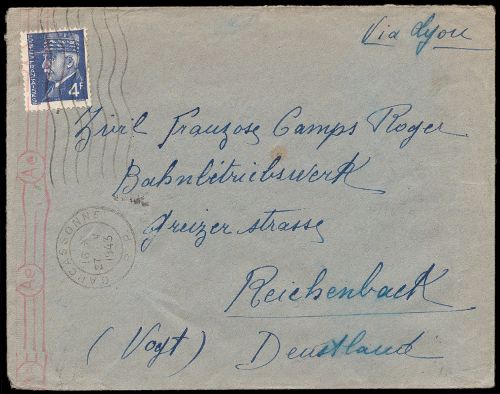 Via Lyon
4F
Zivil Franzose Camps Roger
Bahnbetriebswerk
Greizer strasse
Reichenback
(Vogt) Deustland
CARCASSONNE
1943
Ae
Ae